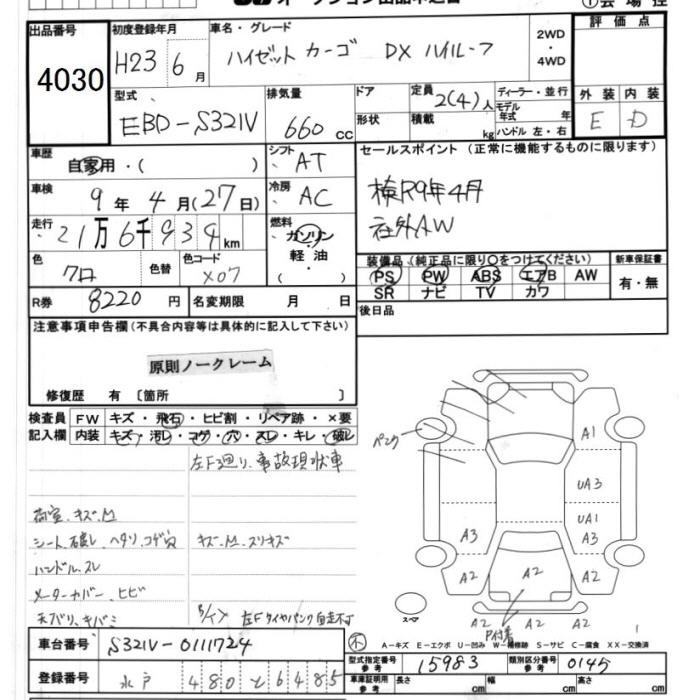 オークション出品申込書
①会場控
出品番号 4030
初度登録年月 H23 6月
車名・グレード ハイゼットカーゴ DX ハイルーフ
2WD・4WD
評価点
型式 EBD-S321V
排気量 660cc
ドア 形状
定員 2(4)人
積載 kg
ディーラー・並行
モデル年式 年
ハンドル 左・右
外装 E 内装 D
車歴 自家用・( )
シフト AT
セールスポイント (正常に機能するものに限ります)
車検 9年4月(27日)
冷房 AC
検R9年4月
社外AW
走行 21万6千934km
燃料 ガソリン・軽油・( )
色 クロ 色替 色コード X07
装備品 (純正品に限り○をつけてください)
PS PW ABS エアB AW
SR ナビ TV カワ
新車保証書 有・無
R券 8220円
名変期限 月 日
後日品
注意事項申告欄(不具合内容等は具体的に記入して下さい)
原則ノークレーム
修復歴 有 〔箇所 〕
検査員記入欄 FW キズ・飛石・ヒビ割・リペア跡・×要
内装 キズ・汚レ・コゲ・穴・スレ・キレ・破レ
左F廻り、事故現状車
荷室、キズ、凹
シート、破レ、ヘタリ、コゲ穴
キズ・凹・スリキズ
ハンドル、スレ
メーターカバー、ヒビ
天バリ、キバミ
左Fタイヤパンク自走不可
パンク
A1
UA3
UA1
A3
A3
A2
A2
A2
スペア
A2
P付着
A2
A2
A2
車台番号 S321V-0111724
A-キズ E-エクボ U-凹み W-補修跡 S-サビ C-腐食 XX-交換済
登録番号 水戸 480と6485
型式指定番号 参考 15983
類別区分番号 参考 0145
車庫証明用 参考 長さ cm 幅 cm 高さ cm